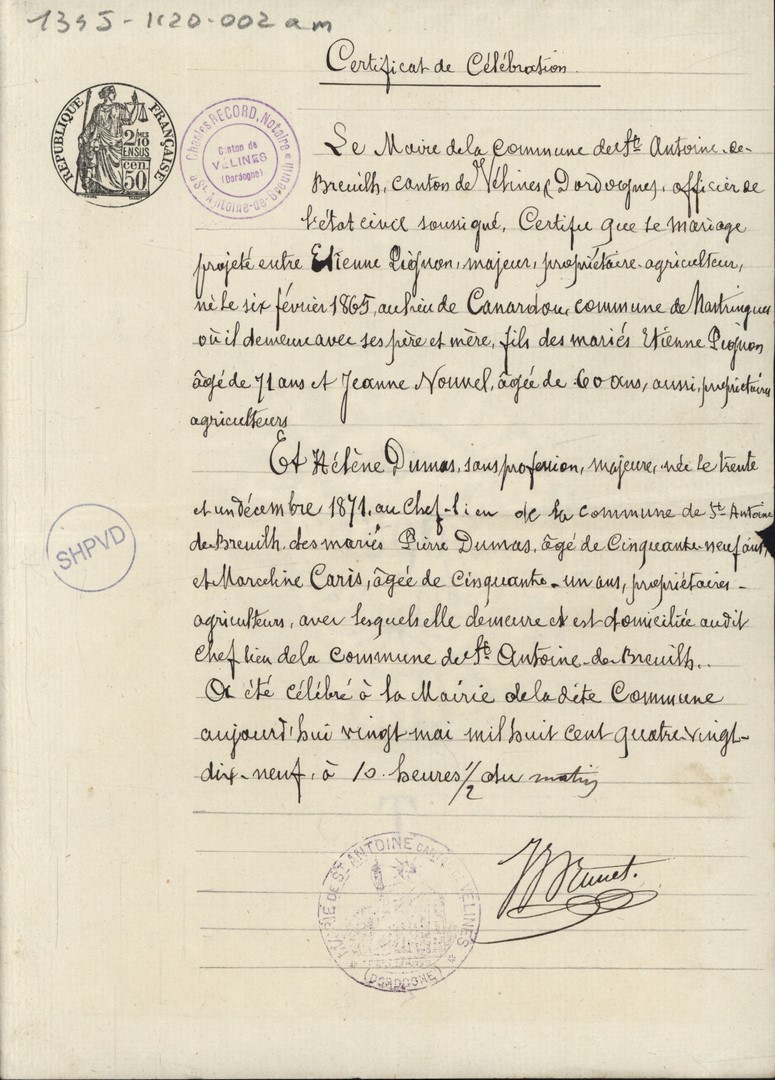 134J-1120-002 am
Certificat de Célébration.
RÉPUBLIQUE FRANÇAISE
2/10
EN SUS
cen
50
Charles RECORD, Notaire à St Antoine-de-
Canton de
VÉLINES
(Dordogne)
Le Maire de la Commune de St Antoine-de-
Breuilh, canton de Vélines (Dordogne), officier de
l'état civil soussigné, Certifie que le mariage
projeté entre Etienne Pignon, majeur, propriétaire-agriculteur,
né le six février 1865, au lieu de Canardou, commune de Nastringues
où il demeure avec ses père et mère, fils des mariés Etienne Pignon
âgé de 71 ans et Jeanne Nouvel, âgée de 60 ans, aussi, propriétaires
agriculteurs
Et Hélène Dumas, sans profession, majeure, née le trente
et un décembre 1871, au Chef-lieu de la commune de St Antoine
de Breuilh, des mariés Pierre Dumas, âgé de Cinquante-neuf ans,
et Marceline Caris, âgée de Cinquante-un ans, propriétaires-
agriculteurs, avec lesquels elle demeure et est domiciliée audit
Chef lieu de la Commune de St Antoine-de-Breuilh..
A été célébré à la Mairie de la dite Commune
aujourd'hui vingt mai mil huit cent quatre-vingt-
dix-neuf, à 10 heures 1/2 du matin
SHPVD
MAIRIE DE ST ANTOINE CANTON DE VÉLINES
(DORDOGNE)